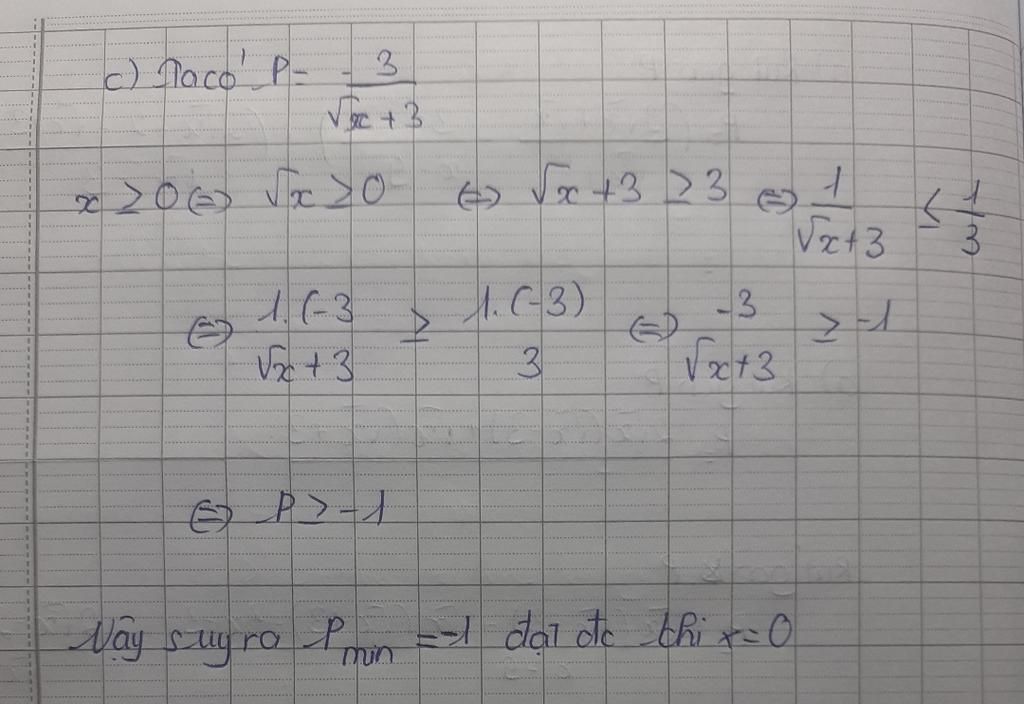 c) Ta có P = -3/(√x + 3)
x ≥ 0 ⇔ √x ≥ 0 ⇔ √x + 3 ≥ 3 ⇔ 1/(√x+3) ≤ 1/3
⇔ 1.(-3/(√x + 3) ≥ 1.(-3)/3 ⇔ -3/(√x+3) ≥ -1
⇔ P ≥ -1
Vậy suy ra Pmin = -1 đạt đc khi x = 0